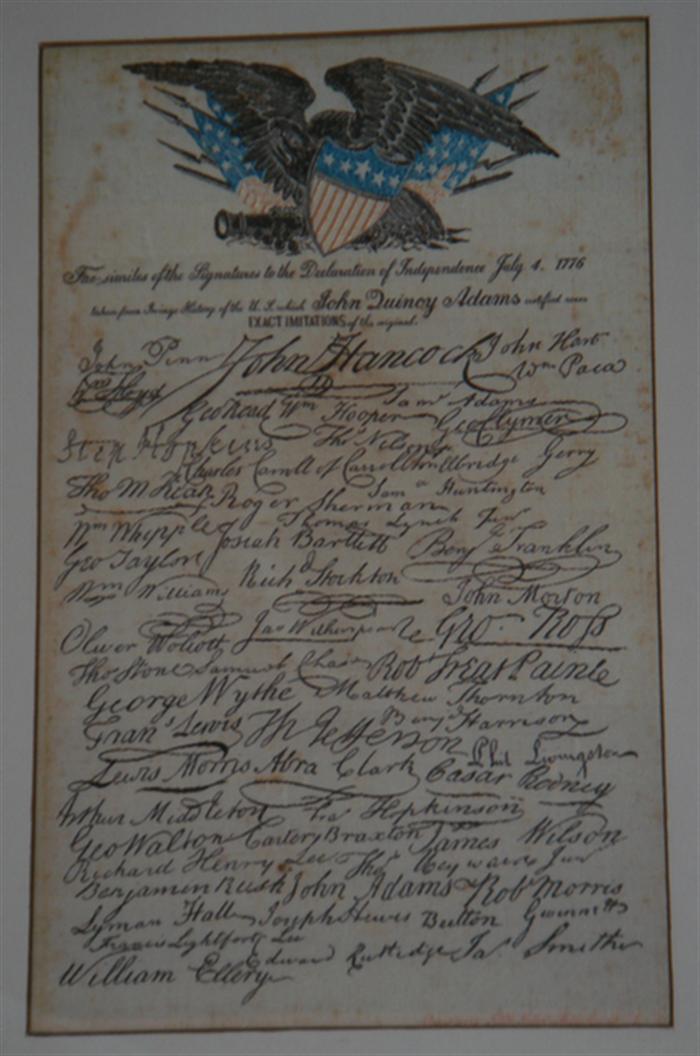 Fac-similes of the Signatures to the Declaration of Independence July 4. 1776
taken from History of the U.S. which John Quincy Adams certified were
EXACT IMITATIONS of the original.
John Penn John Hancock John Hart
Wm Floyd Wm Paca
Saml Adams
Geo Read Wm Hooper Geo Clymer
Step Hopkins Thos Nelson jr
Charles Carroll of Carrollton Elbridge Gerry
Tho M Kean Saml Huntington
Roger Sherman
Wm Whipple Thomas Lynch Junr
Josiah Bartlett Benj Franklin
Geo Taylor
Richd Stockton
Wm Williams John Morton
Oliver Wolcott Jno Witherspoon Geo. Ross
Thos Stone Samuel Chase Robt Treat Paine
George Wythe Matthew Thornton
Frans Lewis Th Jefferson Benj Harrison
Phil Livingston
Lewis Morris Abra Clark Casar Rodney
Arthur Middleton Fras Hopkinson
Geo Walton Carter Braxton James Wilson
Richard Henry Lee Thos Heyward Junr
Benjamin Rush John Adams Robt Morris
Lyman Hall Joseph Hewes Button Gwinnett
Francis Lightfoot Lee
Edward Rutledge Ja. Smith
William Ellery